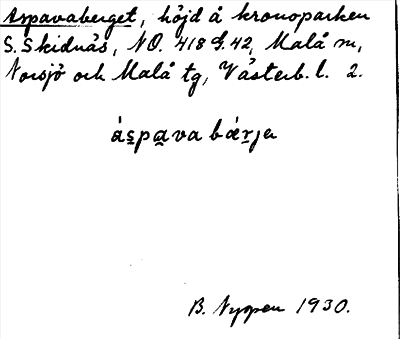 Aspavaberget, höjd å kronoparken
S. Skidnäs, NO. 418 G. 42, Malå m,
Norsjö och Malå tg, Västerb. l. 2.
áspava bǽrja
B. Nyman 1930.